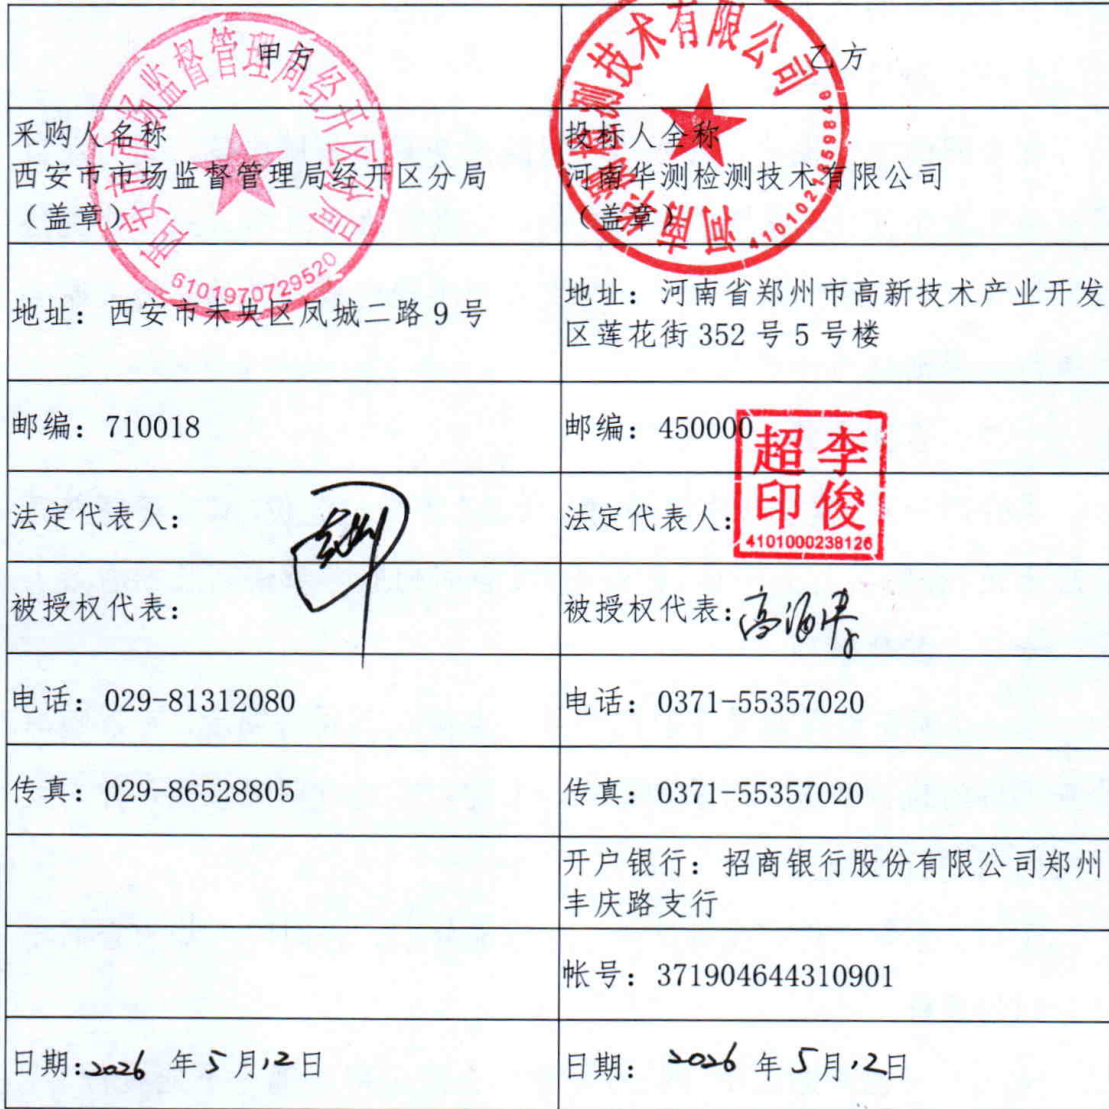 甲方
乙方
采购人名称
西安市市场监督管理局经开区分局
(盖章)
投标人全称
河南华测检测技术有限公司
(盖章)
地址：西安市未央区凤城二路9号
地址：河南省郑州市高新技术产业开发
区莲花街352号5号楼
邮编：710018
邮编：450000
法定代表人：
法定代表人：
李俊
超印
4101000238126
被授权代表：
被授权代表：
电话：029-81312080
电话：0371-55357020
传真：029-86528805
传真：0371-55357020
开户银行：招商银行股份有限公司郑州
丰庆路支行
帐号：371904644310901
日期：2026年5月12日
日期：2026年5月12日
西安市市场监督管理局经开区分局
6101970729520
河南华测检测技术有限公司